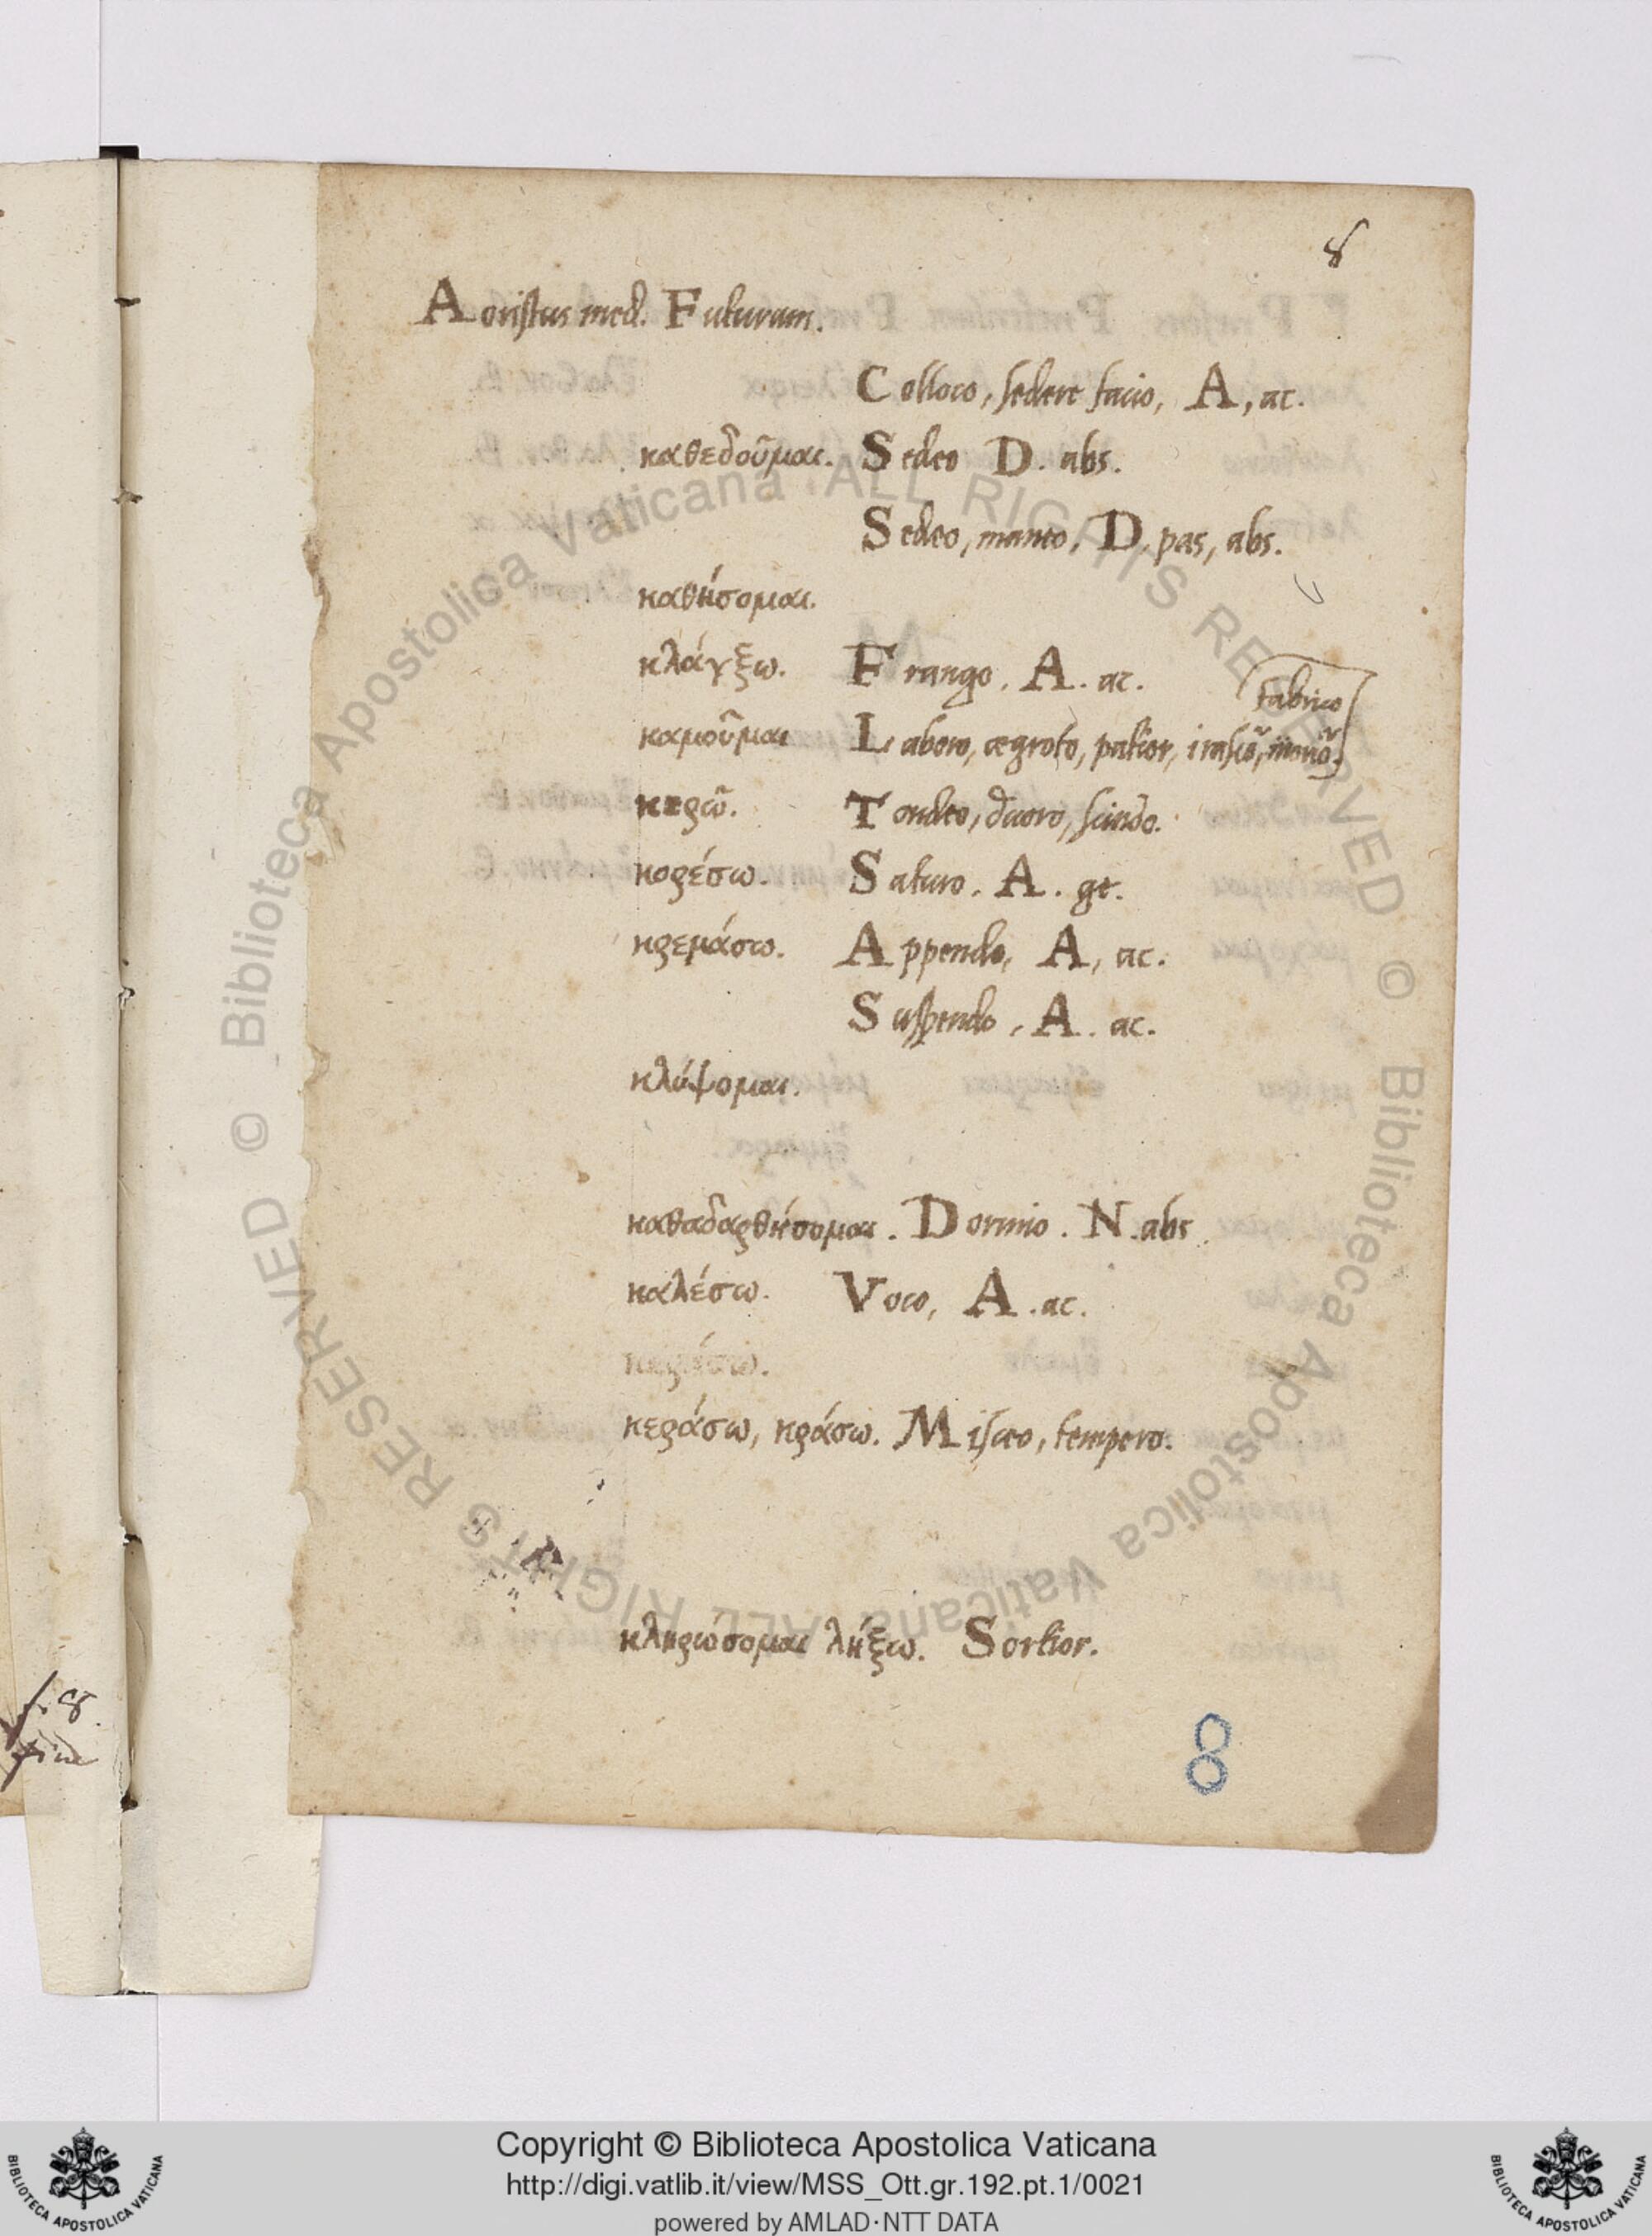 8
Aoristus med. Futurum.
Colloco, sedere facio, A, ac.
καθεδοῦμαι. Sedeo D. abs.
Sedeo, maneo, D. pas, abs.
καθήσομαι.
κλάγξω. Frango. A. ac.
fabrico
καμοῦμαι Laboro, ægroto, patior, irascor̃,
κερῶ. Tondeo, scindo.
κορέσω. Saturo. A. ge.
κρεμάσω. Appendo, A, ac.
Suspendo, A. ac.
κλύψομαι.
καθαδαρθήσομαι. Dormio. N. abs.
καλέσω. Voco, A. ac.
κεράσω, κράσω. Misceo, tempero.
κληρώσομαι λήξω. Sortior.
8
f. 8.
fine
© Biblioteca Apostolica Vaticana ALL RIGHTS RESERVED © Biblioteca Apostolica Vaticana ALL RIGHTS RESERVED
Copyright © Biblioteca Apostolica Vaticana
http://digi.vatlib.it/view/MSS_Ott.gr.192.pt.1/0021
powered by AMLAD·NTT DATA
BIBLIOTECA APOSTOLICA VATICANA
BIBLIOTECA APOSTOLICA VATICANA